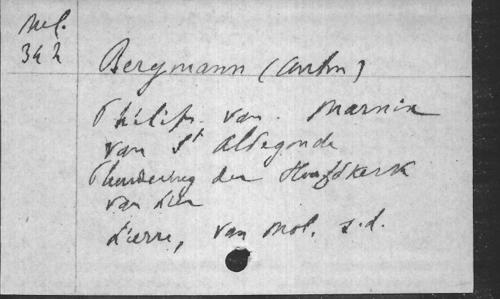 Mel.
342
Bergmann (Anton)
Philip. van. Marnix
van St Aldegonde
der Hoofdkerk
van Lier
Lierre, van Mol. s.d.